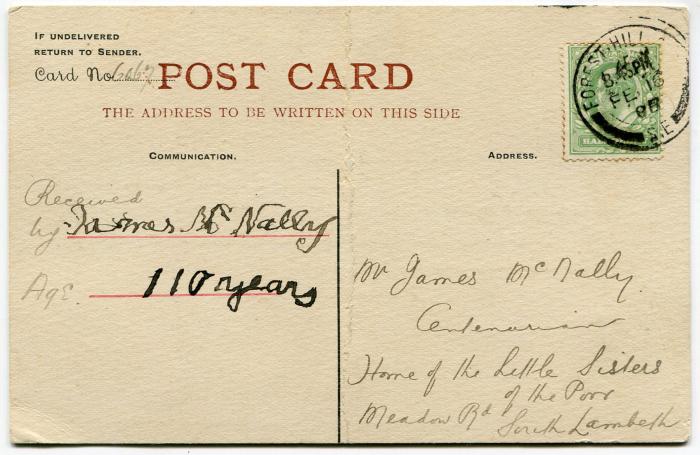 IF UNDELIVERED
RETURN TO SENDER.
Card No. 6667
POST CARD
THE ADDRESS TO BE WRITTEN ON THIS SIDE
COMMUNICATION.
ADDRESS.
FOREST HILL
8.45PM
FE 16
S.E
HAL
Received
by James Mc Nally
Age 110 years
Mr James McNally
Centenarian
Home of the Little Sisters
of the Poor
Meadow Rd
South Lambeth